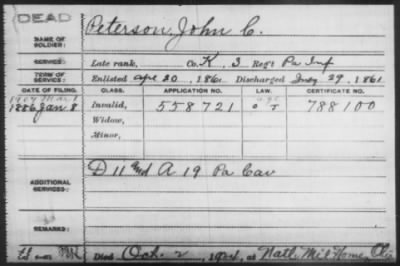 DEAD
NAME OF SOLDIER: Peterson, John C.
SERVICE: Late rank, Co. K, 3 Reg't Pa Inf
TERM OF SERVICE: Enlisted Apr 20, 1861 Discharged July 29, 1861
DATE OF FILING. CLASS. APPLICATION NO. LAW. CERTIFICATE NO.
1886 Jan. 8 Invalid, 558721 788100
Widow,
Minor,
ADDITIONAL SERVICES: D 11 and A 19 Pa Cav
REMARKS:
Died Oct. 2, 1924, at Natl. Mil Home, Ohio